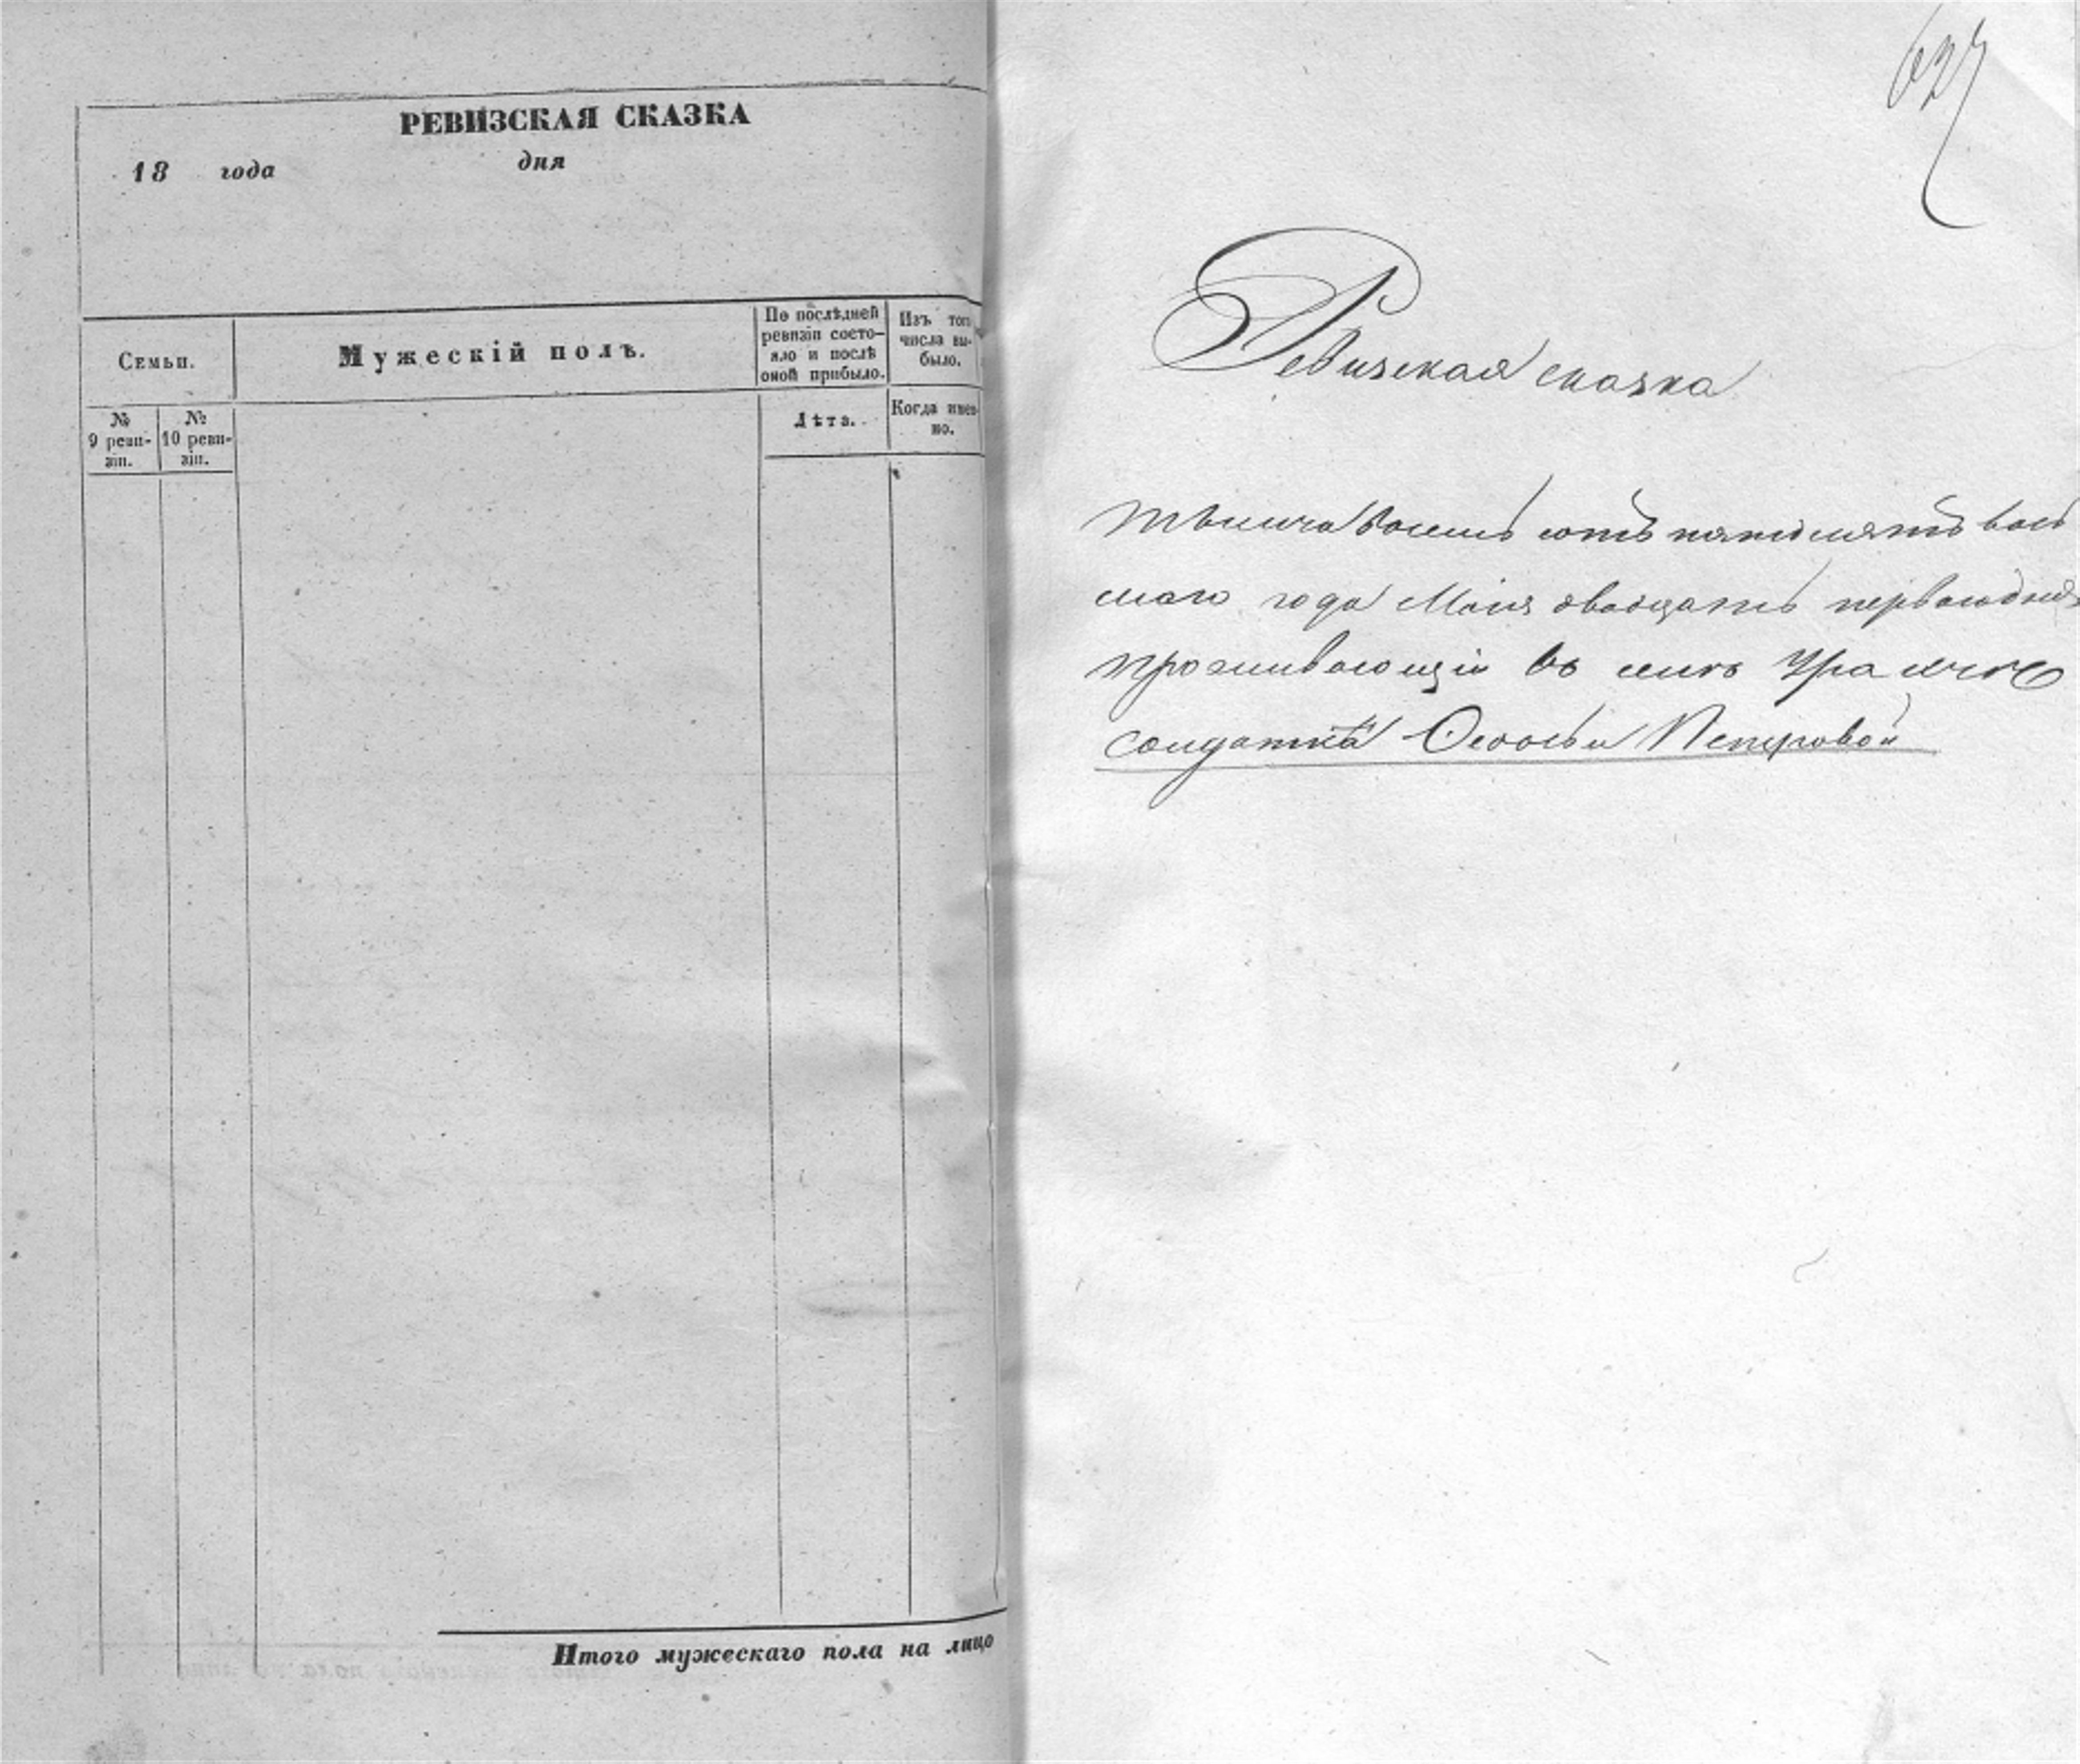 РЕВИЗСКАЯ СКАЗКА
18 года дня
Семьи.
Мужескій полъ.
По послѣдней
ревизіи состо-
яло и послѣ
оной прибыло.
Изъ того
числа вы-
было.
№
9 реви-
зіи.
№
10 реви-
зіи.
Лѣта.
Когда имен-
но.
Итого мужескаго пола на лицо
627
Ревизская сказка
тысяча восемь сотъ пятьдесятъ вось
маго года Маія двадцать перваго дня
проживающій въ
солдатки Петровой